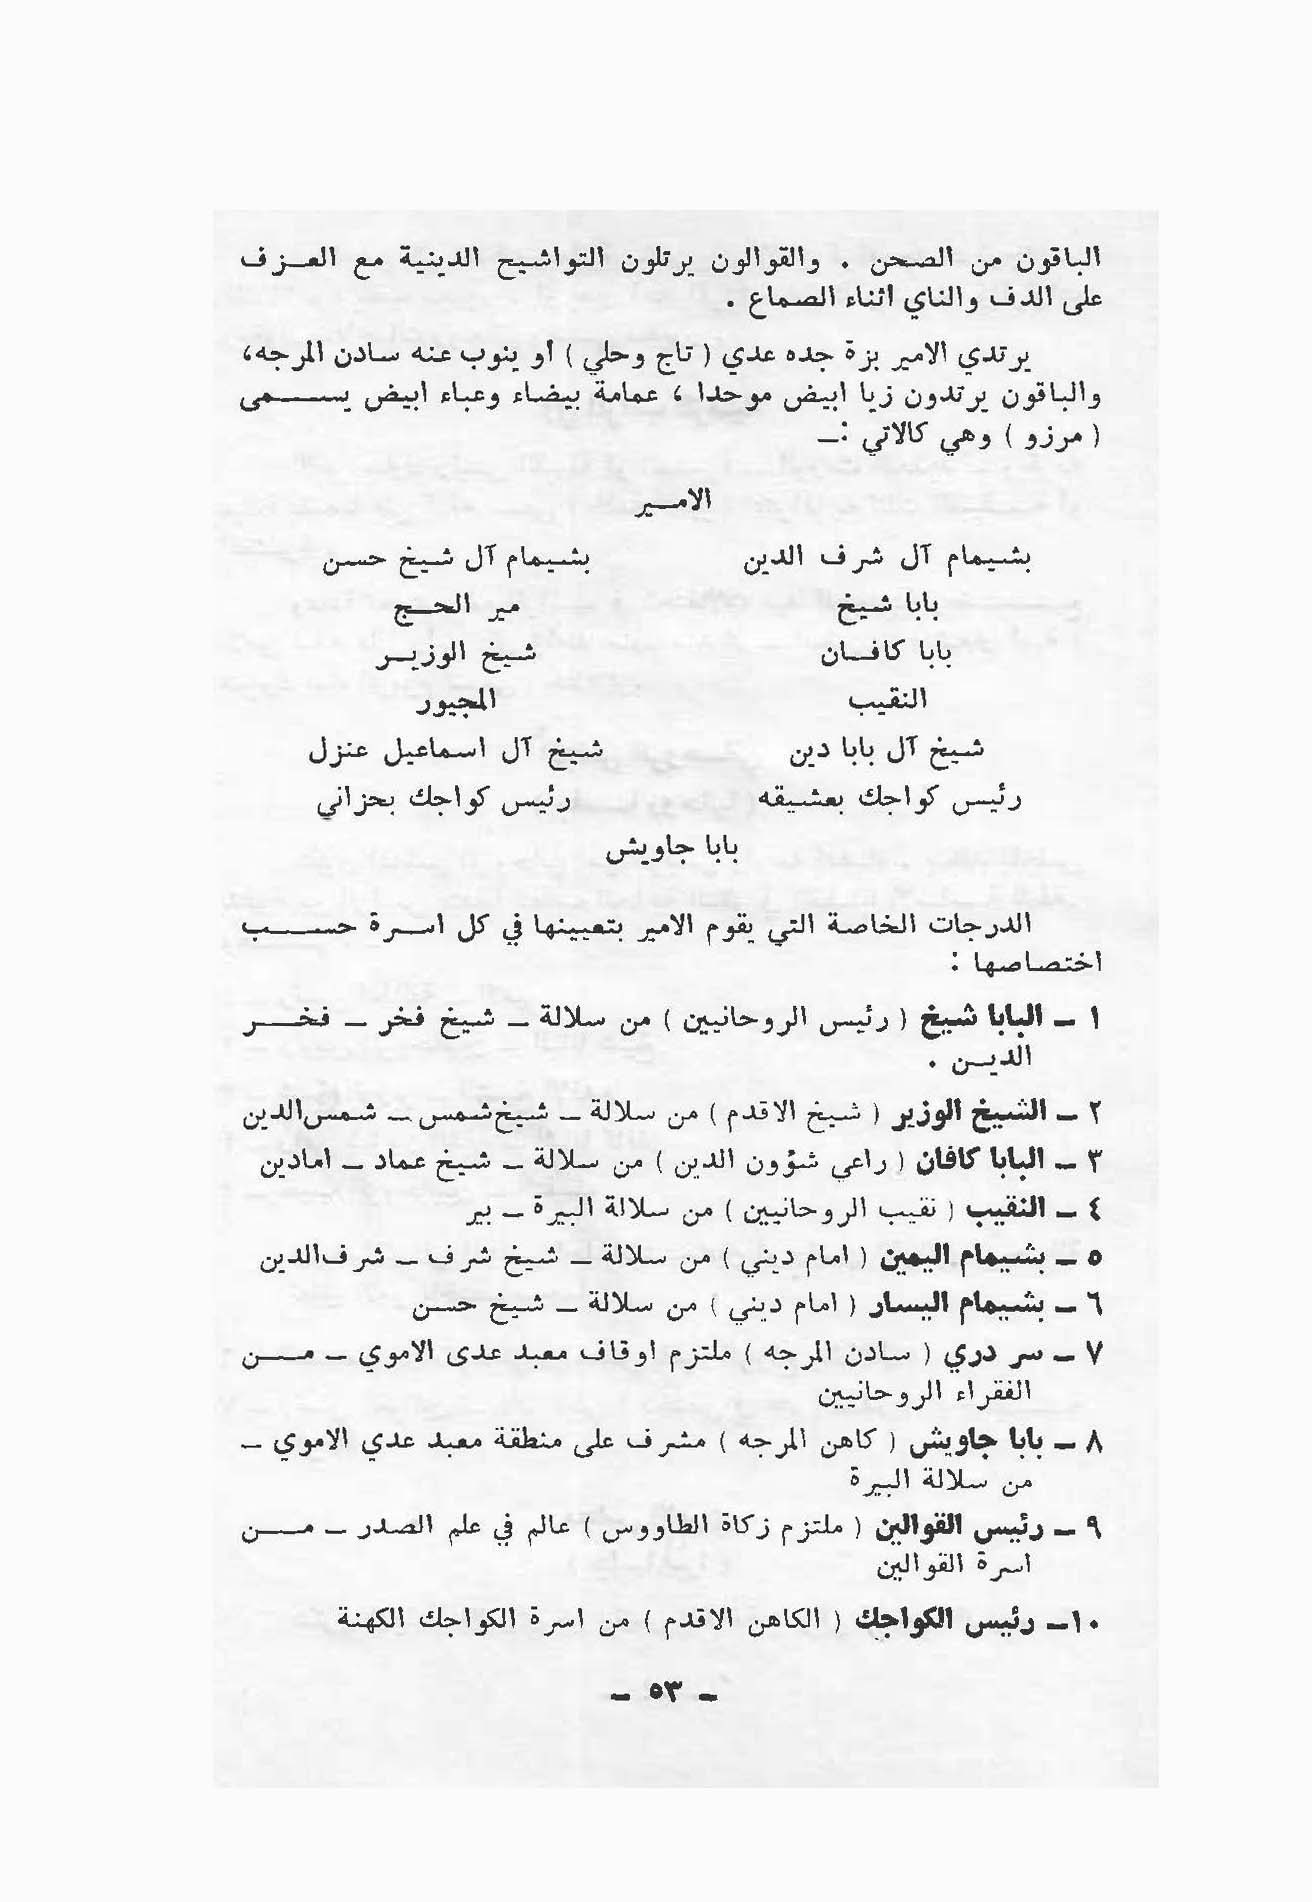 الباقون من الصحن . والقوالون يرتلون التواشيح الدينية مع العزف
على الدف والناي اثناء الصماع .
يرتدي الامير بزة جده عدي ( تاج وحلي ) أو ينوب عنه سادن المرجه،
والباقون يرتدون زيا ابيض موحدا ، عمامة بيضاء وعباء ابيض يسمى
( مرزو ) وهي كالاتي :ـ
الامير
بشيمام آل شرف الدين بشيمام آل شيخ حسن
بابا شيخ مير الحج
بابا كافان شيخ الوزير
النقيب المجيور
شيخ آل بابا دين شيخ آل اسماعيل عنزل
رئيس كواجك بعشيقه رئيس كواجك بحزاني
بابا جاويش
الدرجات الخاصة التي يقوم الامير بتعيينها في كل اسرة حسب
اختصاصها :
١ ـ البابا شيخ ( رئيس الروحانيين ) من سلالة ـ شيخ فخر ـ فخر
الدين .
٢ ـ الشيخ الوزير ( شيخ الاقدم ) من سلالة ـ شيخ شمس ـ شمس الدين
٣ ـ البابا كافان ( راعي شؤون الدين ) من سلالة ـ شيخ عماد ـ امادين
٤ ـ النقيب ( نقيب الروحانيين ) من سلالة البيرة ـ بير
٥ ـ بشيمام اليمين ( امام ديني ) من سلالة ـ شيخ شرف ـ شرف الدين
٦ ـ بشيمام اليسار ( امام ديني ) من سلالة ـ شيخ حسن
٧ ـ سر دري ( سادن المرجه ) ملتزم اوقاف معبد عدى الاموي ـ من
الفقراء الروحانيين
٨ ـ بابا جاويش ( كاهن المرجه ) مشرف على منطقة معبد عدي الاموي ـ
من سلالة البيرة
٩ ـ رئيس القوالين ( ملتزم زكاة الطاووس ) عالم في علم الصدر ـ من
اسرة القوالين
١٠ـ رئيس الكواجك ( الكاهن الاقدم ) من اسرة الكواجك الكهنة
ـ ٥٣ ـ